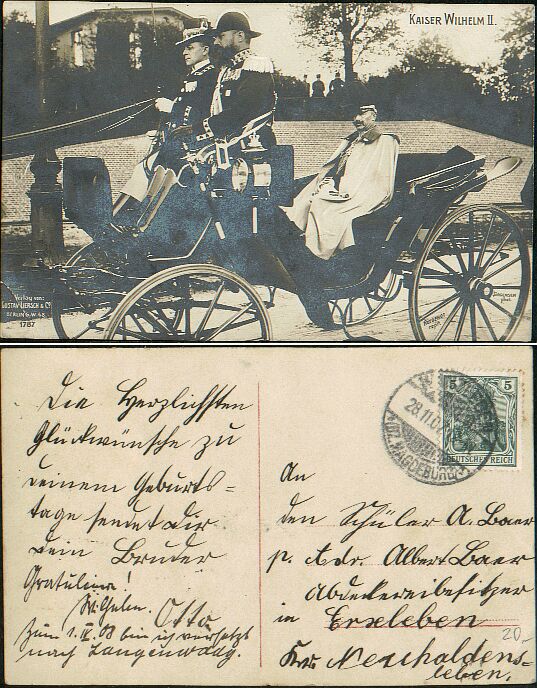 KAISER WILHELM II.
Verlag von:
GUSTAV LIERSCH & Co.
BERLIN S.W. 48.
1787
Die Herzlichsten
Glückwünsche zu
deinem Geburts=
tage sendet dir
dein Bruder
Otto
Gratuliere!
Wilhelm.
Zum 1. IV. 08 bin ich versetzt
nach Langenweddg.
28.11.07
BZ. MAGDEBURG
5 5
DEUTSCHES REICH
An
den Schüler A. Baer
p. Adr. Albert Baer
Abdeckereibesitzer
in Erxleben
Krs Neuhaldens=
leben.
20.-